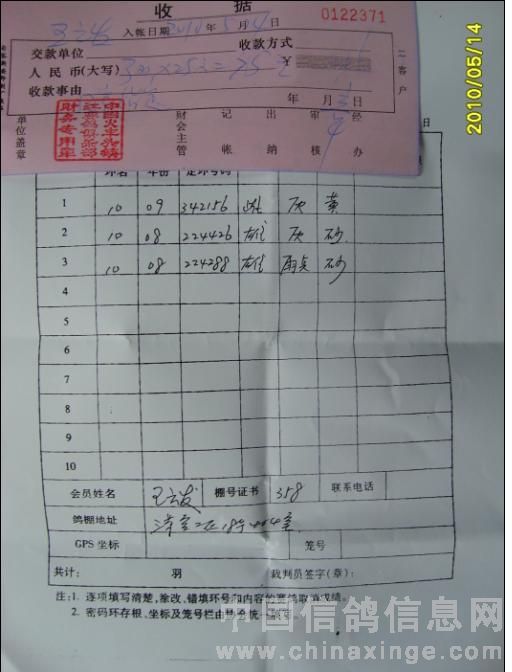 收 据
0122371
入帐日期2010年5月14日
交款单位 收款方式
人民币(大写) 3羽×25元=75元 ¥
收款事由
年 月 日
二 客户
单位盖章
财务专用章
财会主管 记帐 出纳 审核 经办
2010/05/14
日
环名 年份 足环号码
1 10 09 342156 雌 灰 黄
2 10 08 224426 雄 灰 砂
3 10 08 224288 雄 雨点 砂
4
5
6
7
8
9
10
会员姓名 棚号证书 358 联系电话
鸽棚地址
GPS 坐标 笼号
共计: 羽 裁判员签字(章):
注:1. 逐项填写清楚,涂改、错填环号和内容的赛鸽取消成绩。
2. 密码环存根、坐标及笼号栏由协会统一填写。
中国信鸽信息网
www.chinaxinge.com